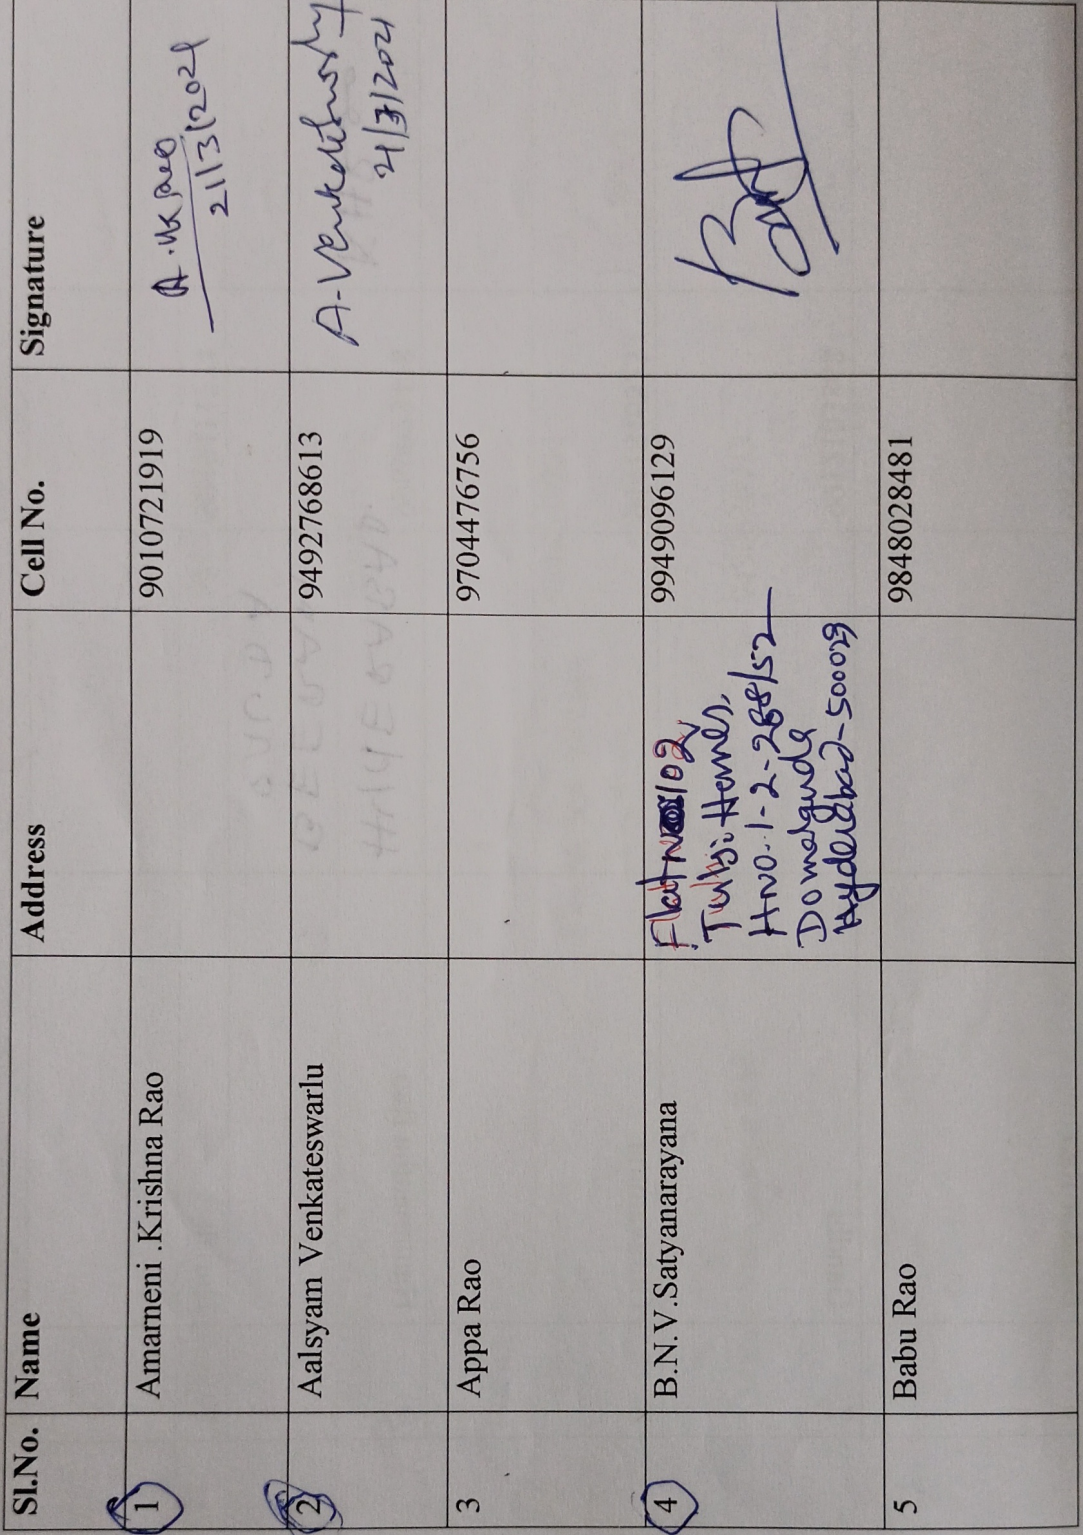 Sl.No. Name Address Cell No. Signature
1 Amarneni .Krishna Rao 9010721919 A.
21/3/2021
2 Aalsyam Venkateswarlu 9492768613 A. Venkateswarlu
21/3/2021
3 Appa Rao 9704476756
4 B.N.V.Satyanarayana 9949096129
Flat No 102
Tulsi Homes,
H.No. 1-2-288/52
Domalguda
Hyderabad-500029
5 Babu Rao 9848028481